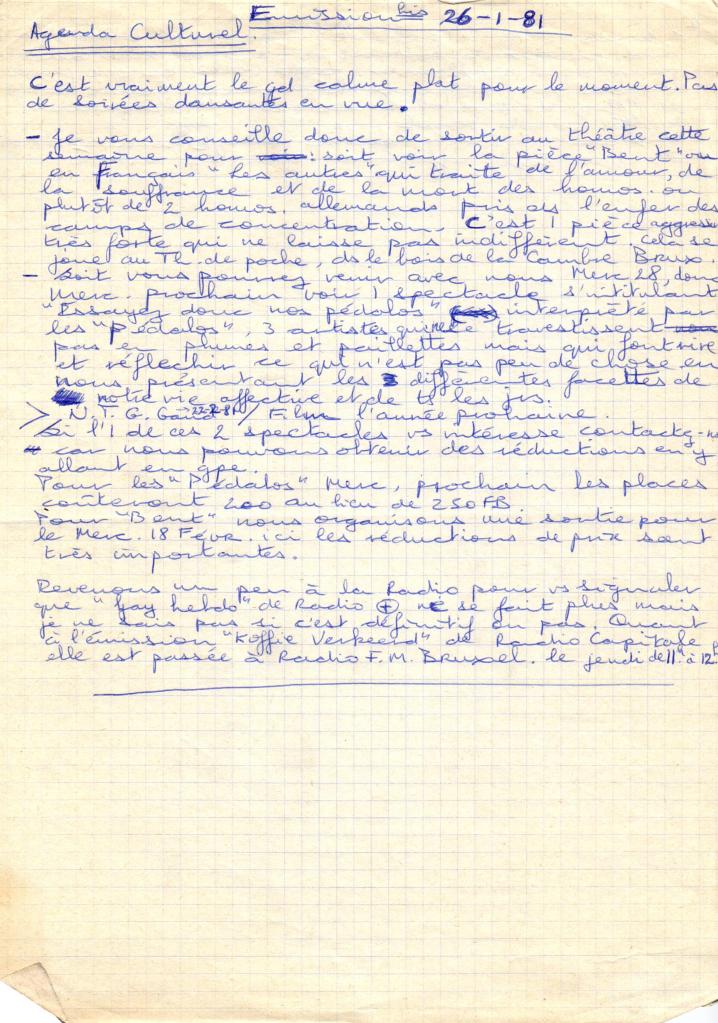 Emission bis 26-1-81
Agenda Culturel.
C'est vraiment le gd calme plat pour le moment. Pas
de soirées dansantes en vue.
- Je vous conseille donc de sortir au théâtre cette
semaine pour : soit voir la pièce "Bent" ou
en Français "Les autres" qui traite de l'amour, de
la souffrance et de la mort des homos. ou
plutôt de 2 homos. allemands pris ds l'enfer des
camps de concentration. C'est 1 pièce
très forte qui ne laisse pas indifférent. cela se
joue au Th. de poche, ds le bois de la Cambre Brux.
- Soit vous pouvez venir avec nous Merc 28, donc
Merc. prochain voir 1 spectacle s'intitulant
"Essayez donc nos pédalos" interprété par
les "Pédalos", 3 artistes qui ne se travestissent
pas en plumes et paillettes mais qui font rire
et réfléchir ce qui n'est pas peu de chose en
nous présentant les différentes facettes de
notre vie affective et de ts les jrs.
> N.T.G. Gand 22-2-81 / Film l'année prochaine.
Si l'1 de ces 2 spectacles vs intéresse contactez-ns
car nous pouvons obtenir des réductions en y
allant en gpe.
Pour les "Pédalos" Merc. prochain les places
coûteront 200 au lieu de 250 FB.
Pour "Bent" nous organisons une sortie pour
le Merc. 18 Févr. ici les réductions de prix sont
très importantes.
Revenons un peu à la Radio pour vs signaler
que "Gay hebdo" de Radio ⊕ ne se fait plus mais
je ne sais pas si c'est définitif ou pas. Quant
à l'émission "Koffie Verkeerd" de Radio Capitale
elle est passée à Radio F.M. Bruxel. le jeudi de 11h à 12h